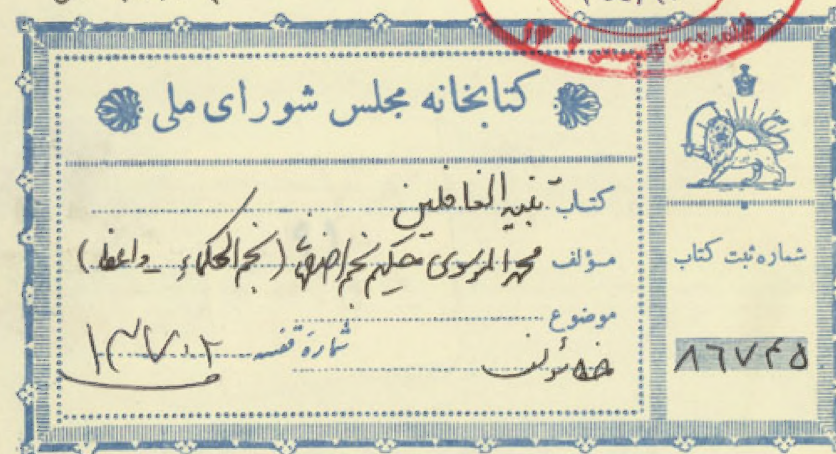 کتابخانه مجلس شورای ملی
کتاب تنبیه الغافلین
مؤلف محمد الموسوی حکیم نجم اصفهانی (نجم الحکماء - واعظ)
موضوع
شماره قفسه ۱۳۷۰۲
شماره ثبت کتاب
۸۶۷۴۵